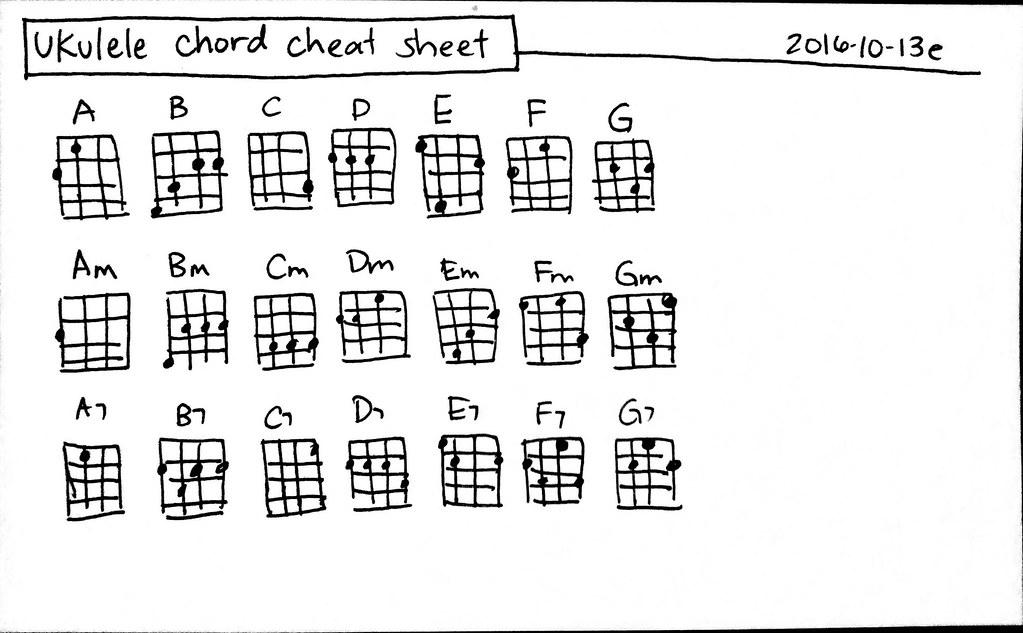 Ukulele chord cheat sheet
2016-10-13e
A B C D E F G
Am Bm Cm Dm Em Fm Gm
A7 B7 C7 D7 E7 F7 G7